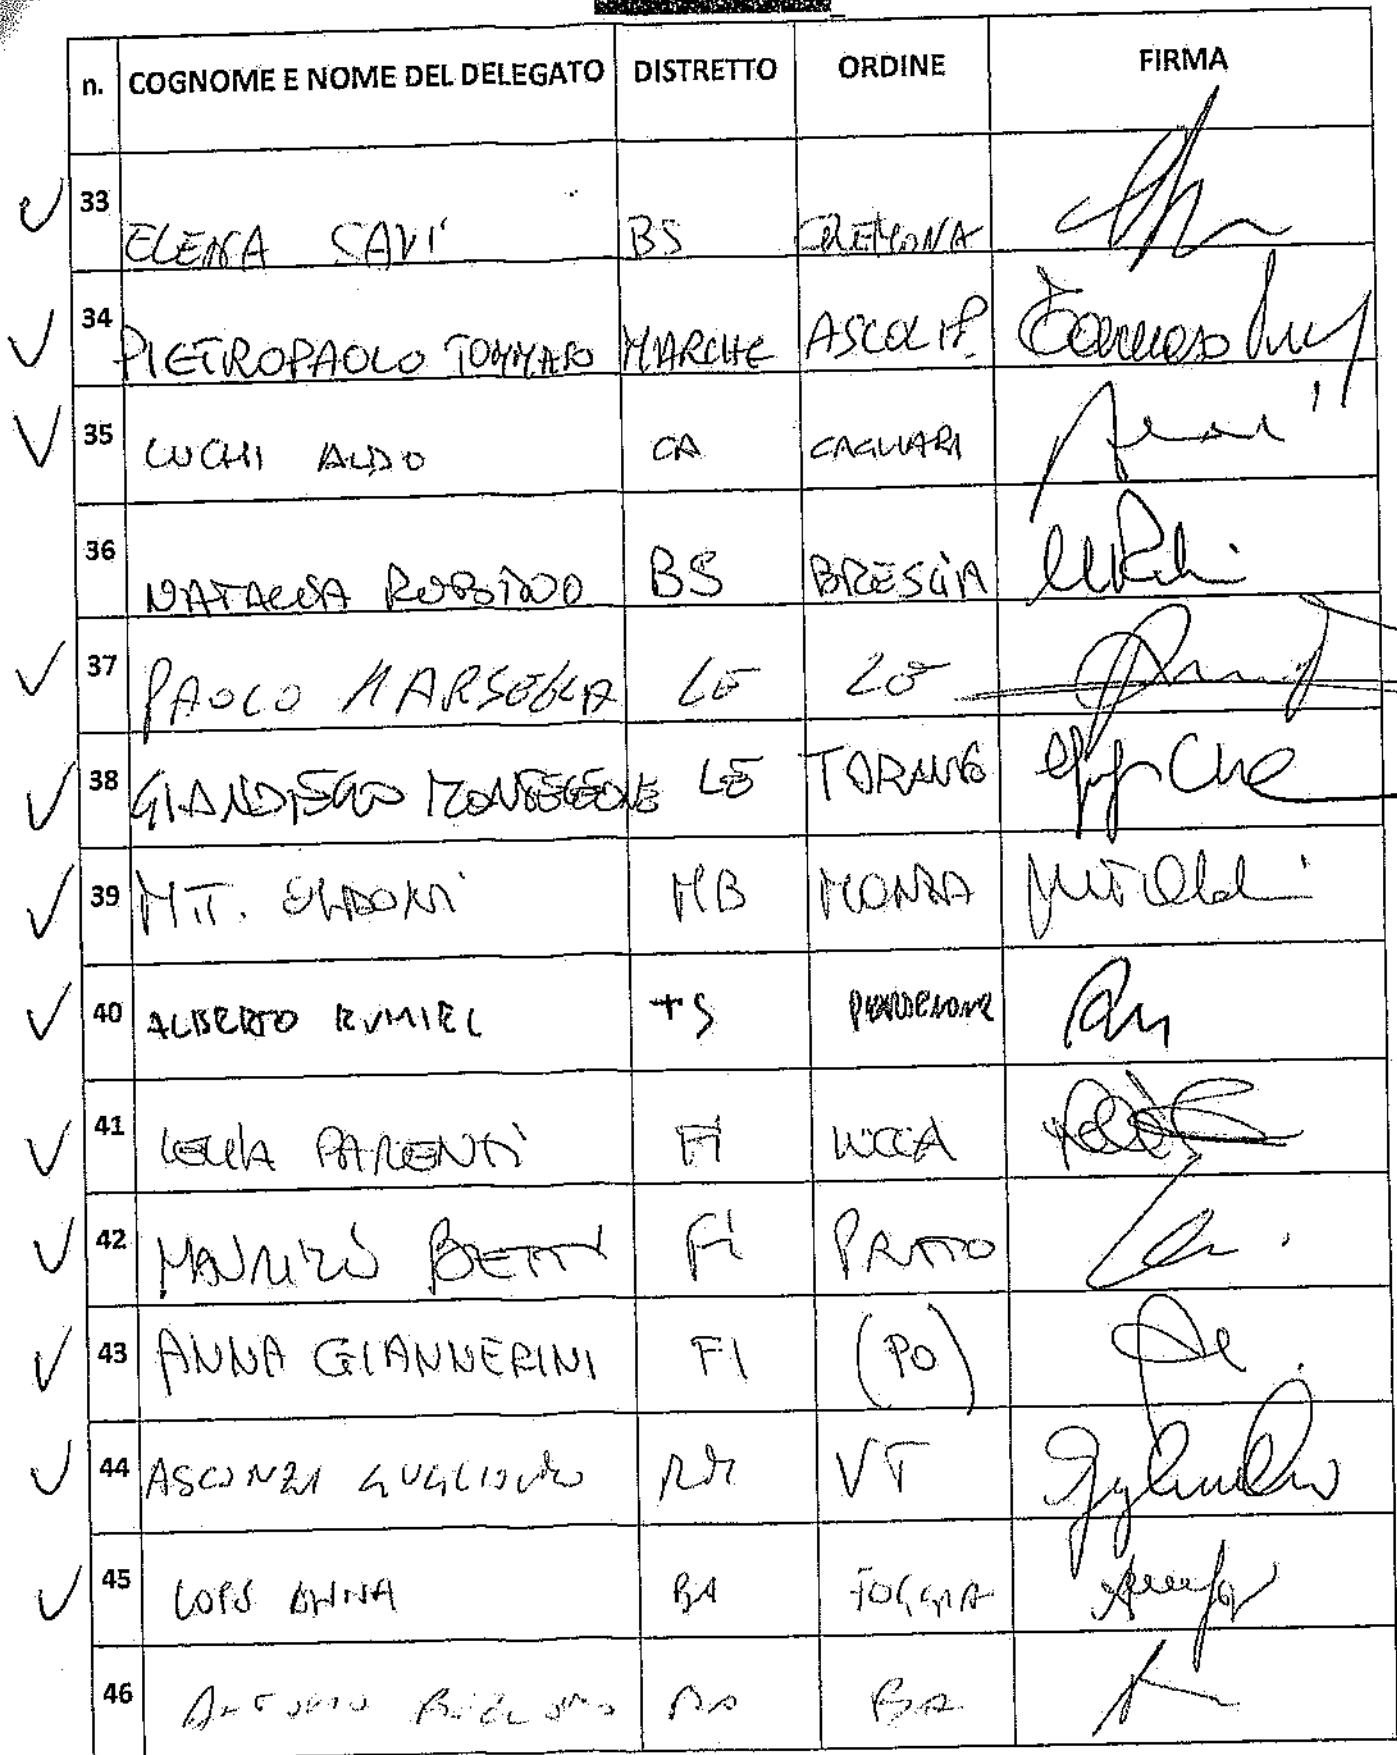 n. COGNOME E NOME DEL DELEGATO DISTRETTO ORDINE FIRMA
33 ELENA SAVI' BS CREMONA
34 PIETROPAOLO TOMMASO MARCHE ASCOLI P.
35 LUCHI ALDO CA CAGLIARI
36 NATALIA BS BRESCIA
37 PAOLO MARSEGLIA LE LE
38 GIANDIEGO MONTELEONE LE TARANTO
39 MT. MB MONZA
40 ALBERTO RUMIEL TS PORDENONE
41 LELIA PARENTI FI LUCCA
42 MAURIZIO BETTI FI PRATO
43 ANNA GIANNERINI FI (PO)
44 ASCONZI GUGLIELMO RM VT
45 LOPS ANNA BA FOGGIA
46 ANTONIO BA